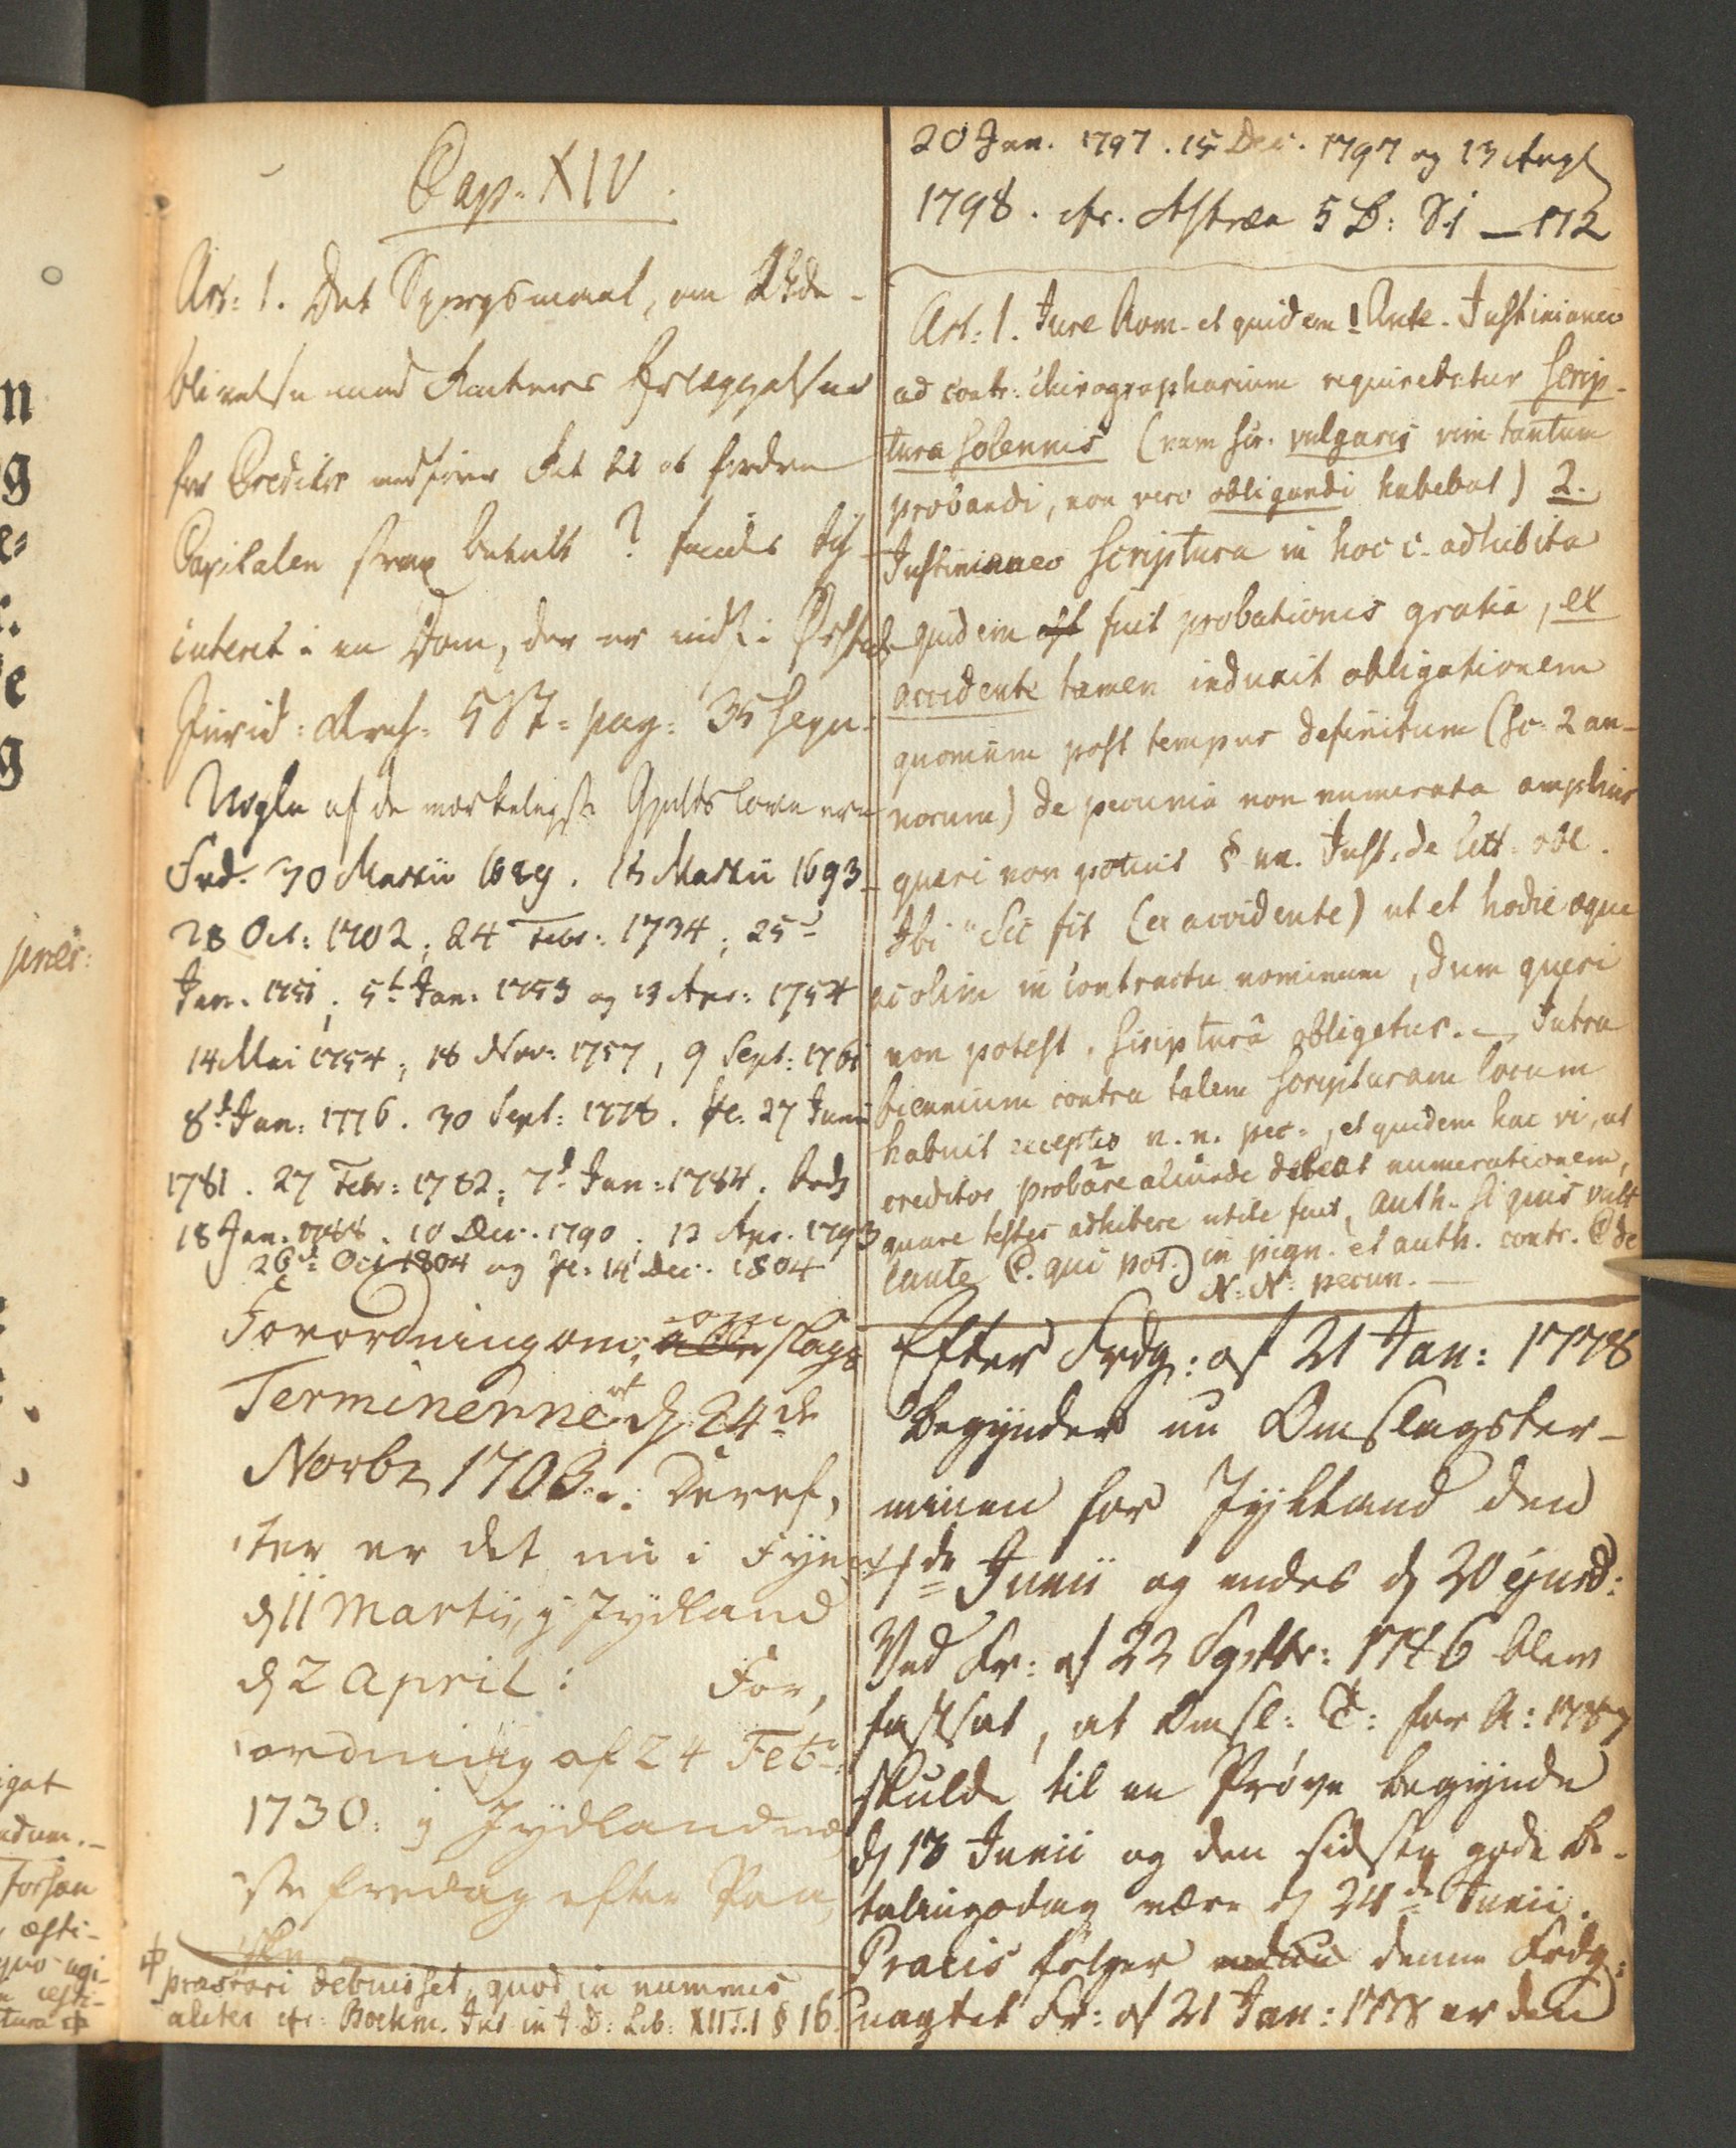 Cap. XIV.
Art: 1. Det Spørgsmaal, om Ude-
blivelse med Renters Erlæggelse
for Creditor medfører Ret til at fordre
Capitalen strax betalt? findes
i en Dom, der er indf. i Ørsteds
Jurid: Arch: 5 St: pag: 35 seqv.
Nogle af de mærkeligste Gjeldslove ere
Frd. 30 Martii 16 . 15 Martii 1693
28 Oct: 1702; 24 Febr: 1734; 25
Jan. 1751; 5t Jan: 1753 og 13 Apr: 1754
14 Mai 1754; 18 Nov: 1757, 9 Sept: 1761
8d Jan: 1776. 30 Sept: 1778. pl: 27 Junii
1781. 27 Febr: 1782; 7d Jan: 1784.
18 Jan. 1788. 10 Dec. 1790. 12 Apr. 1793
26d Oct 1804 og pl: 14 Dec. 1804
Forordning om; om slags
Terminerne af d 24de
Novbr 1703.: Deref,
ter er det nu i Fyen
d 11 Martii, i Jydland
d 2 April: For,
ordning af 24 Feb:
1730: i Jydland næ
ste Fredag efter Paa,
ske
præstari debuisset, quod in numeris
aliter cfr: Boehm. Jus in J. D: Lib: XII T.1 § 16.
20 Jan. 1797. 15 Dec. 1797 og 13 Aug
1798. cfr. Astræa 5 B: S. 1 — 172
Art: 1. Jure Rom. et quidem 1 Ante-Justinianeo
ad contr: chirographarium requirebatur scrip-
tura solennis (nam scr. vulgaris vim tantum
probandi, non vero obligandi habebat) 2.
Justinianeo scriptura in hoc c. adhibita
quidem est fuit probationis gratia, ex
accidente tamen induxit obligationem
quoniam post tempus definitum (sc. 2 an-
norum) de pecunia non numerata amplius
queri non potuit § un. Inst. de litt. obl.
Ibi "sic fit (ex accidente) ut et hodie æque
ac olim in contractu nominum, dum queri
non potest, scripturâ obligetur. — Intra
biennium contra talem scripturam locum
habuit exceptio n. n. pec., et quidem hac vi, ut
creditor probare aliunde debeat numerationem,
quare testes adhibere utile fuit, auth. si quis vult
caute C. qui pot. in pign. et auth. contr. C de
N: N: pecun. —
Efter Frdg: af 21 Jan: 1778
begynder nu Omslagster-
minen for Jylland den
1de Junii og endes d 20 ejusd:
Ved Fr: af 22 Sptbr: 1786 blev
fastsat, at Omsl: T: for A: 1787
skulde til en Prøve begynde
d 13 Junii og den sidste gode Be-
talingsdag være d 24de Junii.
Praxis følger endnu denne Frdg:
uagtet Fr: af 21 Jan: 1778 er den